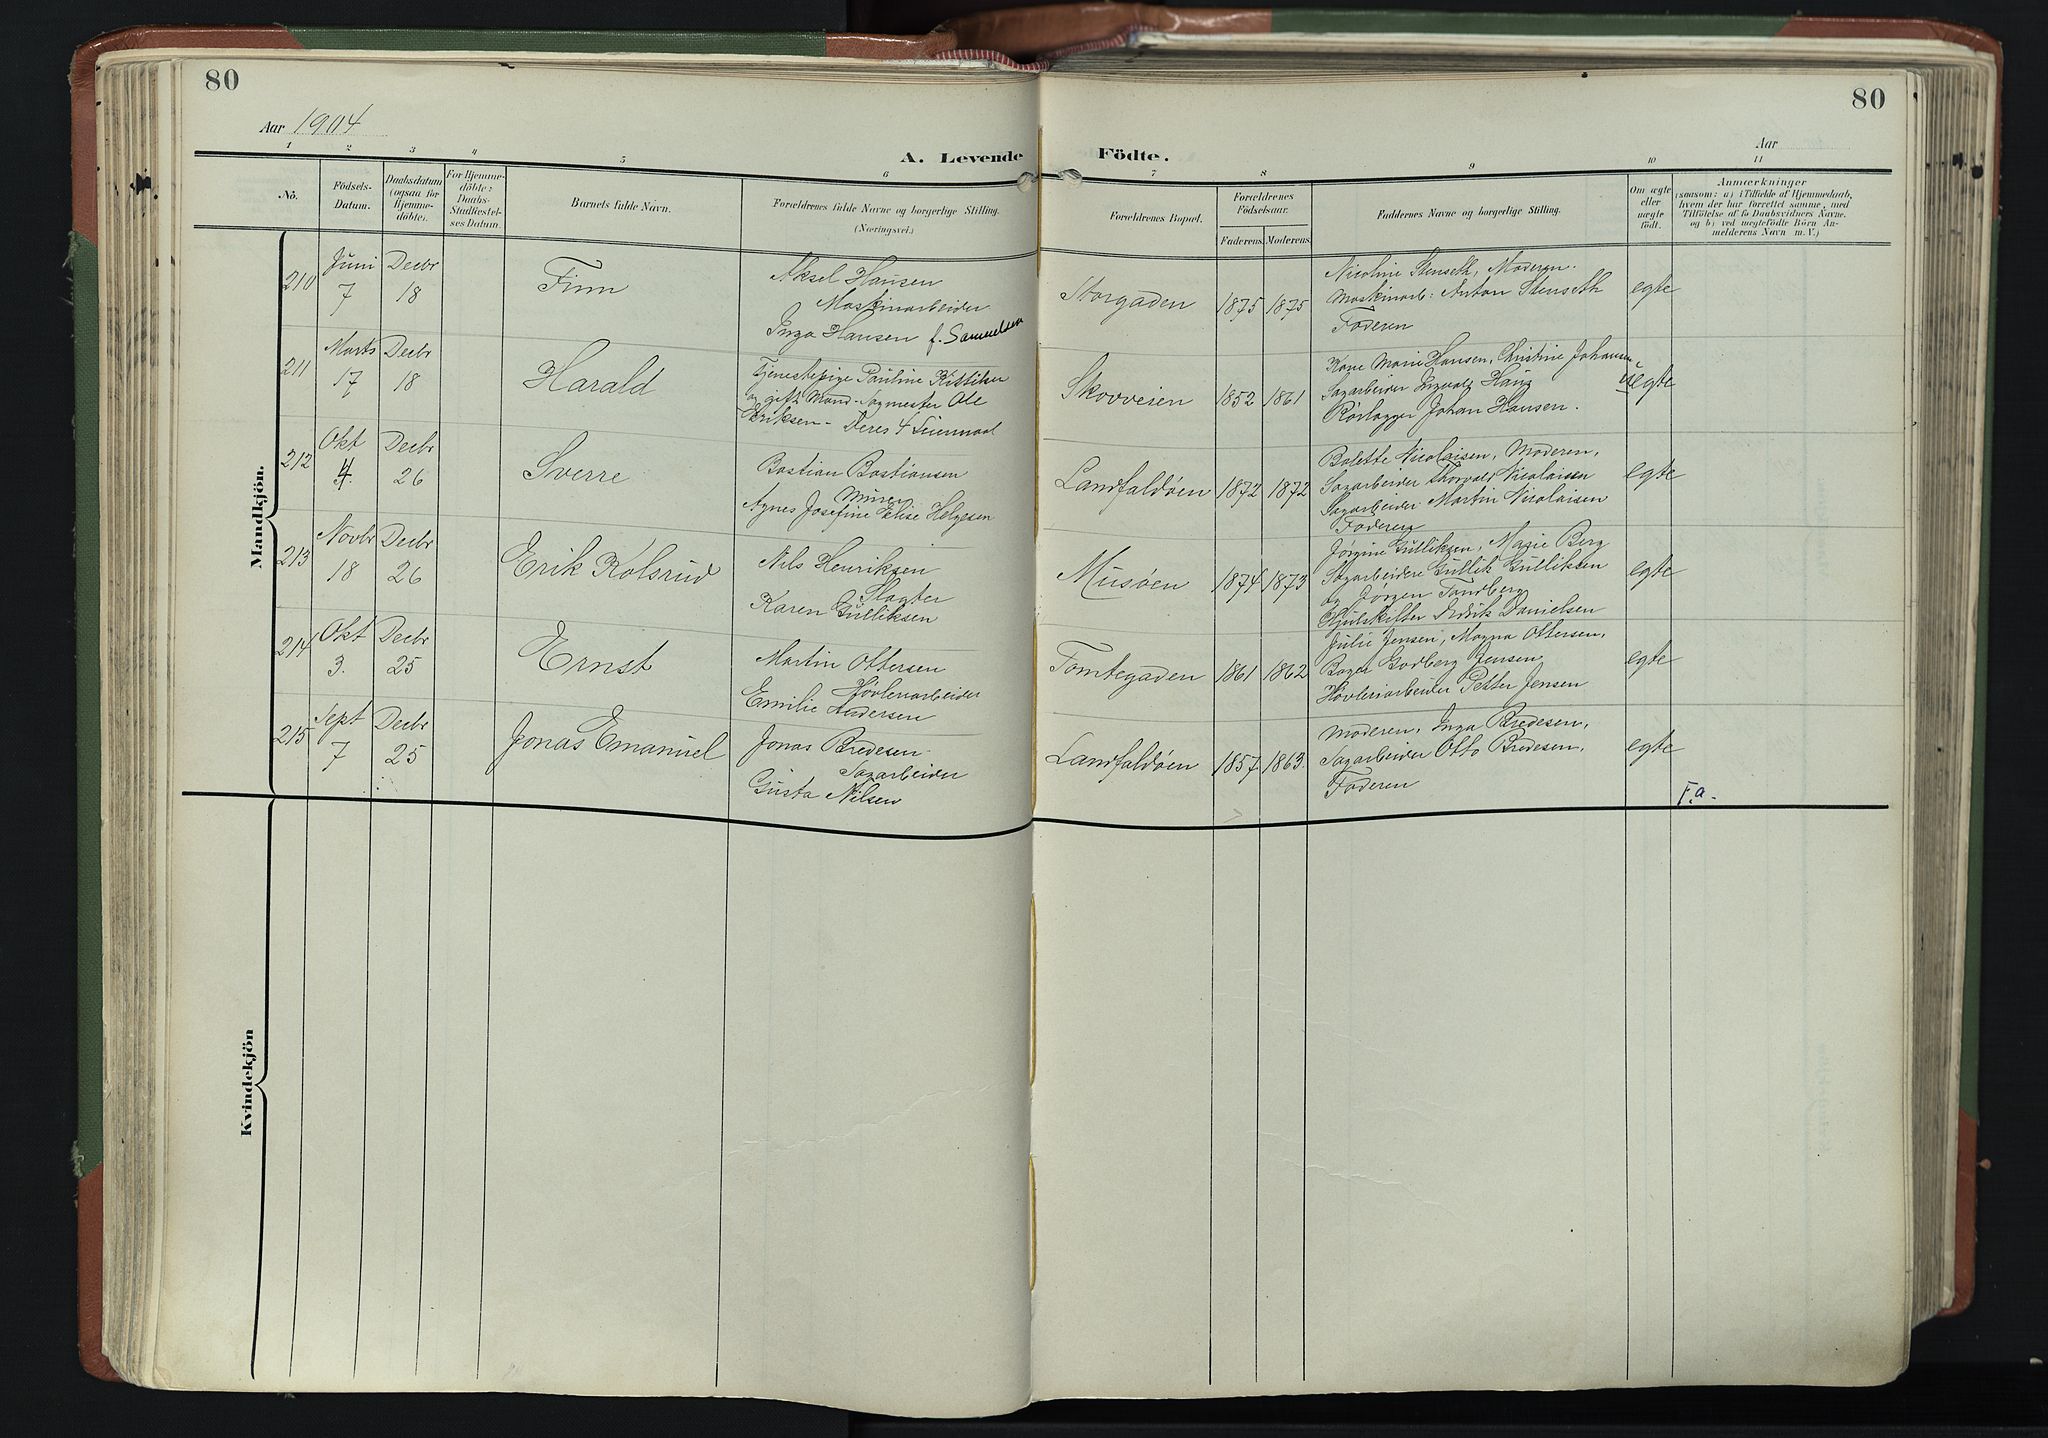 80
80
Aar 1904
Aar
A. Levende Födte.
1 2 3 4 5 6 7 8 9 10 11
No.
Födsels-
Datum.
Daabsdatum
(ogsaa for
Hjemme-
döbte).
For Hjemme-
döbte:
Daabs-
Stadfæstel-
ses Datum.
Barnets fulde Navn.
Forældrenes fulde Navne og borgerlige Stilling.
(Næringsvei.)
Forældrenes Bopæl.
Forældrenes
Födselsaar.
Faderens. Moderens.
Faddernes Navne og borgerlige Stilling.
Om ægte
eller
uægte
födt.
Anmærkninger
(saasom: a) i Tilfælde af Hjemmedaab,
hvem der har forrettet samme, med
Tilföielse af to Daabsvidners Navne,
og b) ved uægtefödte Börn An-
melderens Navn m. V.)
Mandkjön.
210
Juni
7
Decbr
18
Finn
Aksel Hansen
Maskinarbeider
Inga Hansen f. Samuelsen
Storgaden
1875 1875
Nicoline Stenseth, Moderen.
Maskinarb: Anton Stenseth
Faderen
egte
211
Marts
17
Decbr
18
Harald
Tjenestepige Pauline Kittilsen
og gift Mand Sagmester Ole
Eriksen - Deres 4 Leiermaal
Skovveien
1852 1861
Kaue Marie Hansen, Christine Johansen,
Sagarbeider Ingvald Haug
Rørlægger Johan Hansen.
uegte
212
Okt
4.
Decbr
26
Sverre
Bastian Bastiansen
Murer
Agnes Josefine Elise Helgesen
Landfaldøen
1872 1872
Bolette Nicolaisen, Moderen,
Sagarbeider Thorvald Nicolaisen
Sagarbeider Martin Nicolaisen
Faderen
egte
213
Novbr
18
Decbr
26
Erik Kolsrud
Nils Henriksen
Slagter
Karen Gulliksen
Musøen
1874 1873
Jørgine Gulliksen, Marie Berg
Sagarbeidere Gullik Gulliksen
og Jørgen Tandberg
Hjulskifter Fredrik Danielsen
egte
214
Okt
3.
Decbr
25
Ernst
Martin Ottersen
Høvleriarbeider
Emilie Andersen
Tomtegaden
1861 1862
Julie Jensen, Magna Ottersen,
Bager Godberg Jensen
Høvleriarbeider Petter Jensen
egte
215
Sept
7
Decbr
25
Jonas Emanuel
Jonas Bredesen
Sagarbeider
Gusta Nilsen
Landfaldøen
1857 1863.
Moderen, Inga Bredesen,
Sagarbeider Otto Bredesen,
Faderen
egte
F.a.
Kvindekjön